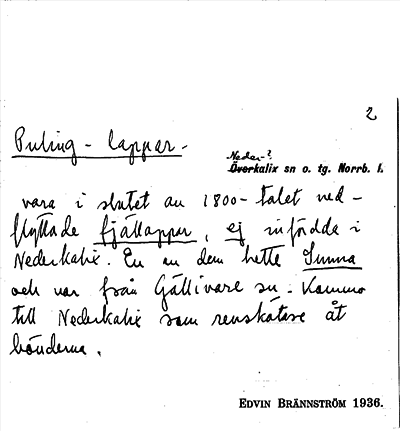 2
Puling-lappar-
Neder-?
Överkalix sn o. tg. Norrb. l.
vara i slutet av 1800-talet ned-
flyttade fjällappar, ej infödda i
Nederkalix. En av dem hette Sunna
och var från Gällivare sn. Kommo
till Nederkalix som renskötare åt
bönderna.
EDVIN BRÄNNSTRÖM 1936.